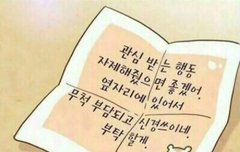 관심 받는 행동
자제해줬으면 좋겠어.
옆자리에 있어서
무척 부담되고 신경쓰이네.
부탁 할게.